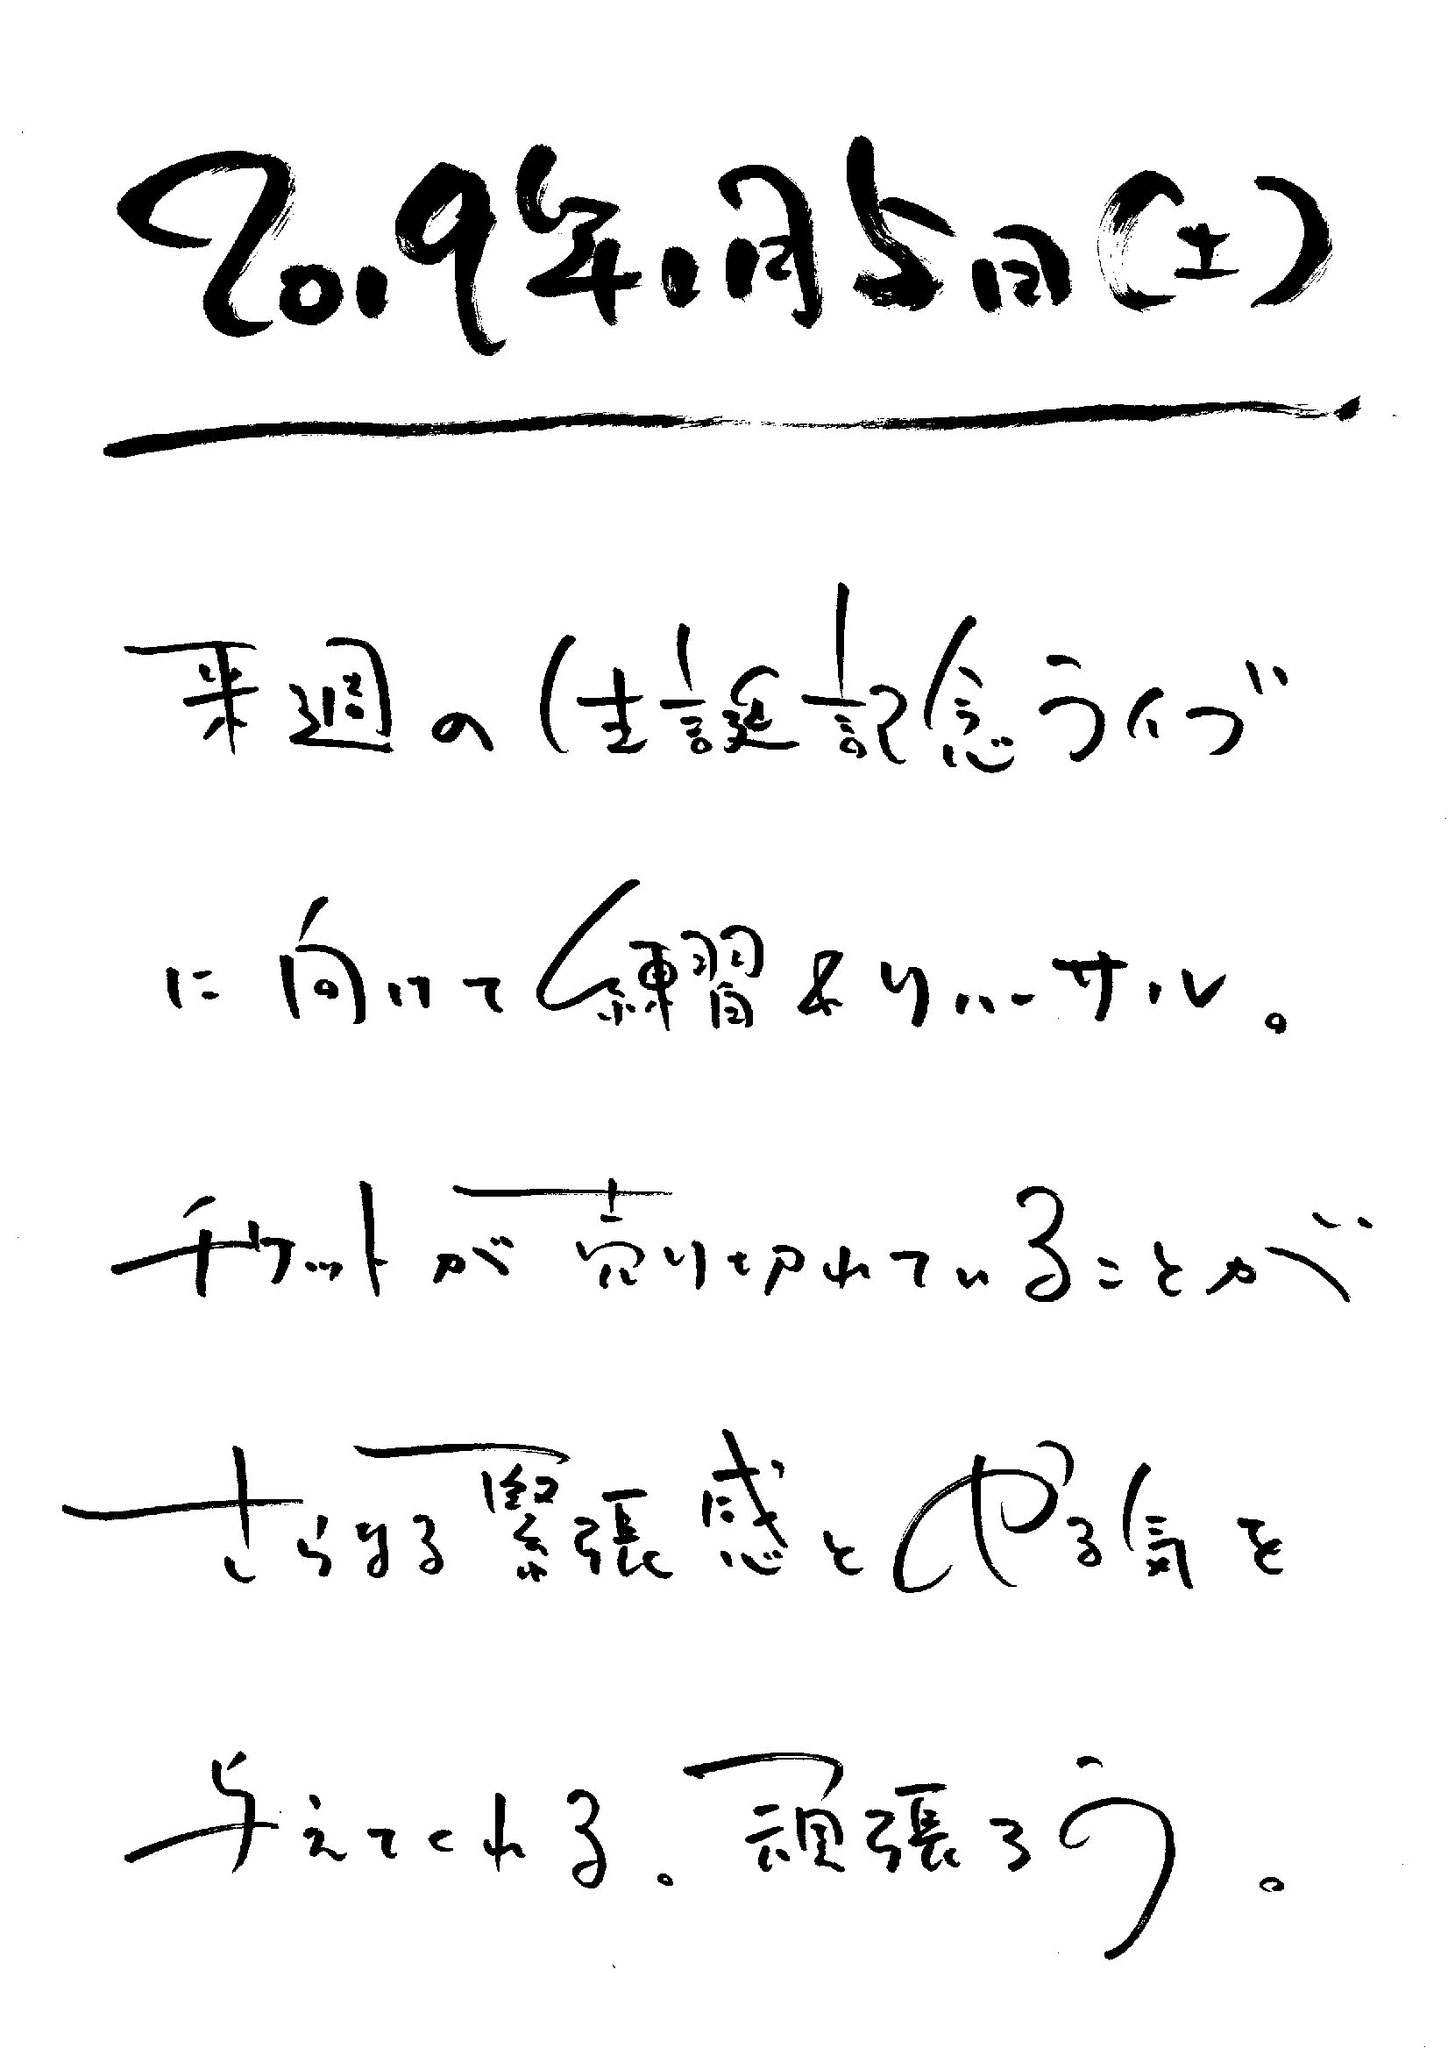 2019年1月5日(土)
来週の生誕記念ライブ
に向けて練習&リハーサル。
チケットが売り切れていることが
さらなる緊張感とやる気を
与えてくれる。頑張ろう。